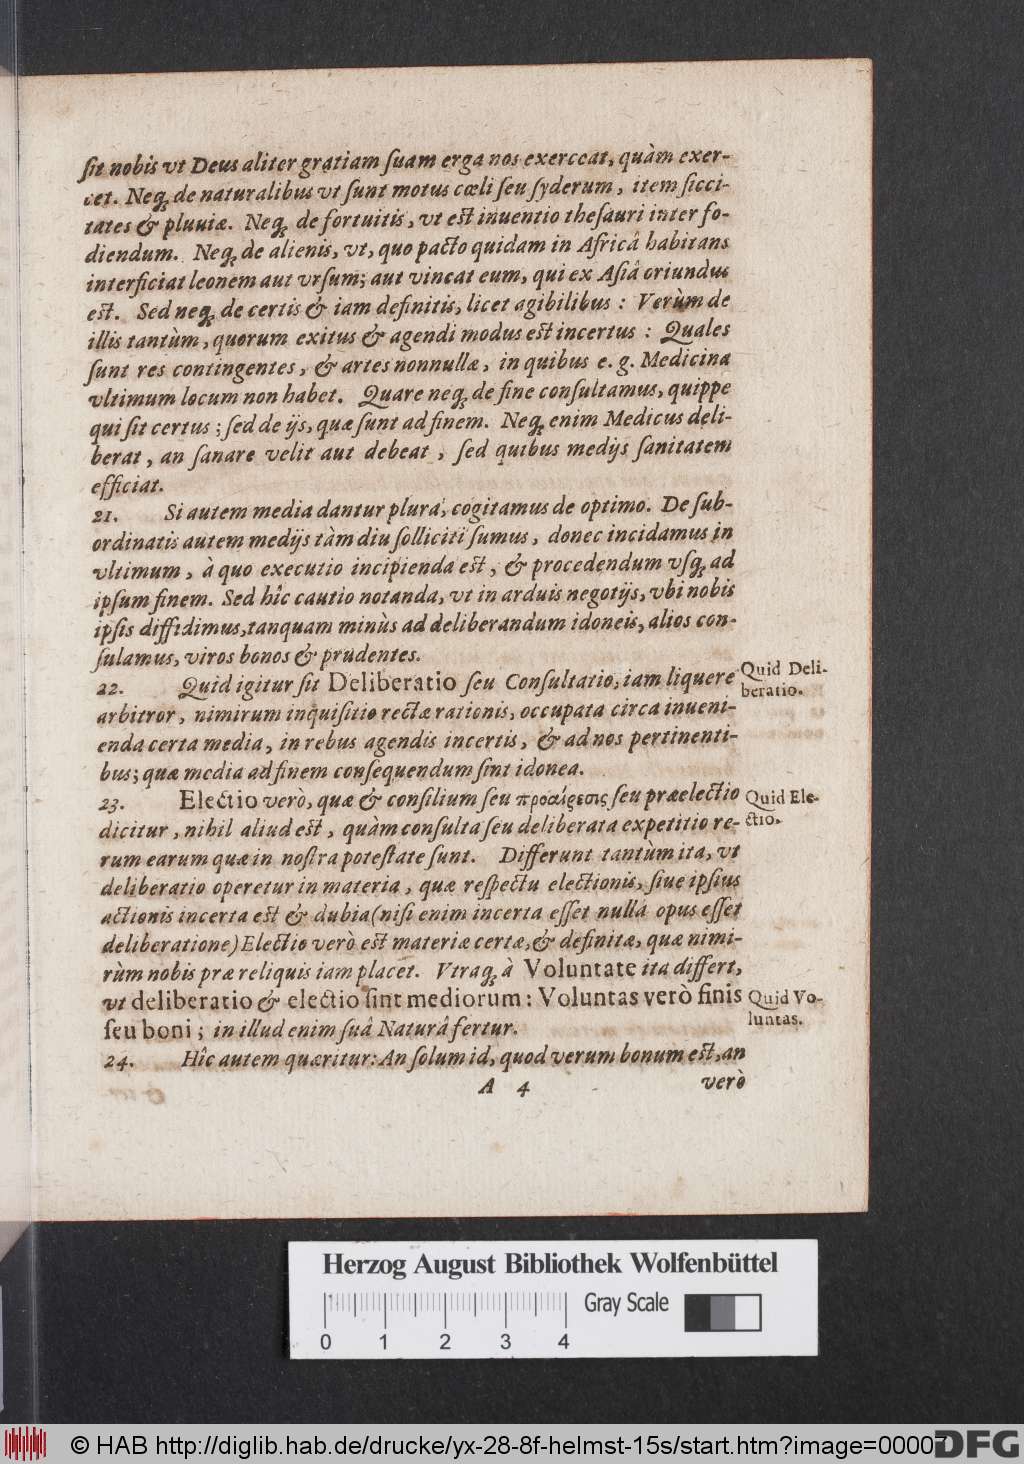 ſit nobis vt Deus aliter gratiam ſuam erga nos exerceat, quàm exer-
cet. Neq; de naturalibus vt ſunt motus cœli ſeu ſyderum, item ſicci-
tates & pluuiæ. Neq; de fortuitis, vt eſt inuentio theſauri inter fo-
diendum. Neq; de alienis, vt, quo pacto quidam in Africâ habitans
interficiat leonem aut vrſum; aut vincat eum, qui ex Aſiâ oriundus
eſt. Sed neq; de certis & iam definitis, licet agibilibus : Verùm de
illis tantùm, quorum exitus & agendi modus eſt incertus : Quales
ſunt res contingentes, & artes nonnullæ, in quibus e. g. Medicina
vltimum locum non habet. Quare neq; de fine conſultamus, quippe
qui ſit certus ; ſed de ijs, quæ ſunt ad finem. Neq; enim Medicus deli-
berat, an ſanare velit aut debeat, ſed quibus medijs ſanitatem
efficiat.
21. Si autem media dantur plura, cogitamus de optimo. De ſub-
ordinatis autem medijs tàm diu ſolliciti ſumus, donec incidamus in
vltimum, à quo executio incipienda eſt, & procedendum vſq; ad
ipſum finem. Sed hîc cautio notanda, vt in arduis negotijs, vbi nobis
ipſis diffidimus, tanquam minùs ad deliberandum idoneis, alios con-
ſulamus, viros bonos & prudentes.
22. Quid igitur ſit Deliberatio ſeu Conſultatio, iam liquere
Quid Deli-
beratio.
arbitror, nimirum inquiſitio rectæ rationis, occupata circa inueni-
enda certa media, in rebus agendis incertis, & ad nos pertinenti-
bus; quæ media ad finem conſequendum ſint idonea.
23. Electio verò, quæ & conſilium ſeu προαίρεσις ſeu præelectio
Quid Ele-
ctio.
dicitur, nihil aliud eſt, quàm conſulta ſeu deliberata expetitio re-
rum earum quæ in noſtra poteſtate ſunt. Differunt tantùm ita, vt
deliberatio operetur in materia, quæ reſpectu electionis, ſiue ipſius
actionis incerta eſt & dubia (niſi enim incerta eſſet nullâ opus eſſet
deliberatione) Electio verò eſt materiæ certæ, & definitæ, quæ nimi-
rùm nobis præ reliquis iam placet. Vtraq; à Voluntate ita differt,
vt deliberatio & electio ſint mediorum : Voluntas verò finis
Quid Vo-
luntas.
ſeu boni ; in illud enim ſuâ Naturâ fertur.
24. Hîc autem quæritur: An ſolum id, quod verum bonum eſt, an
A 4 verò
Herzog August Bibliothek Wolfenbüttel
Gray Scale
0 1 2 3 4
© HAB http://diglib.hab.de/drucke/yx-28-8f-helmst-15s/start.htm?image=00007
DFG